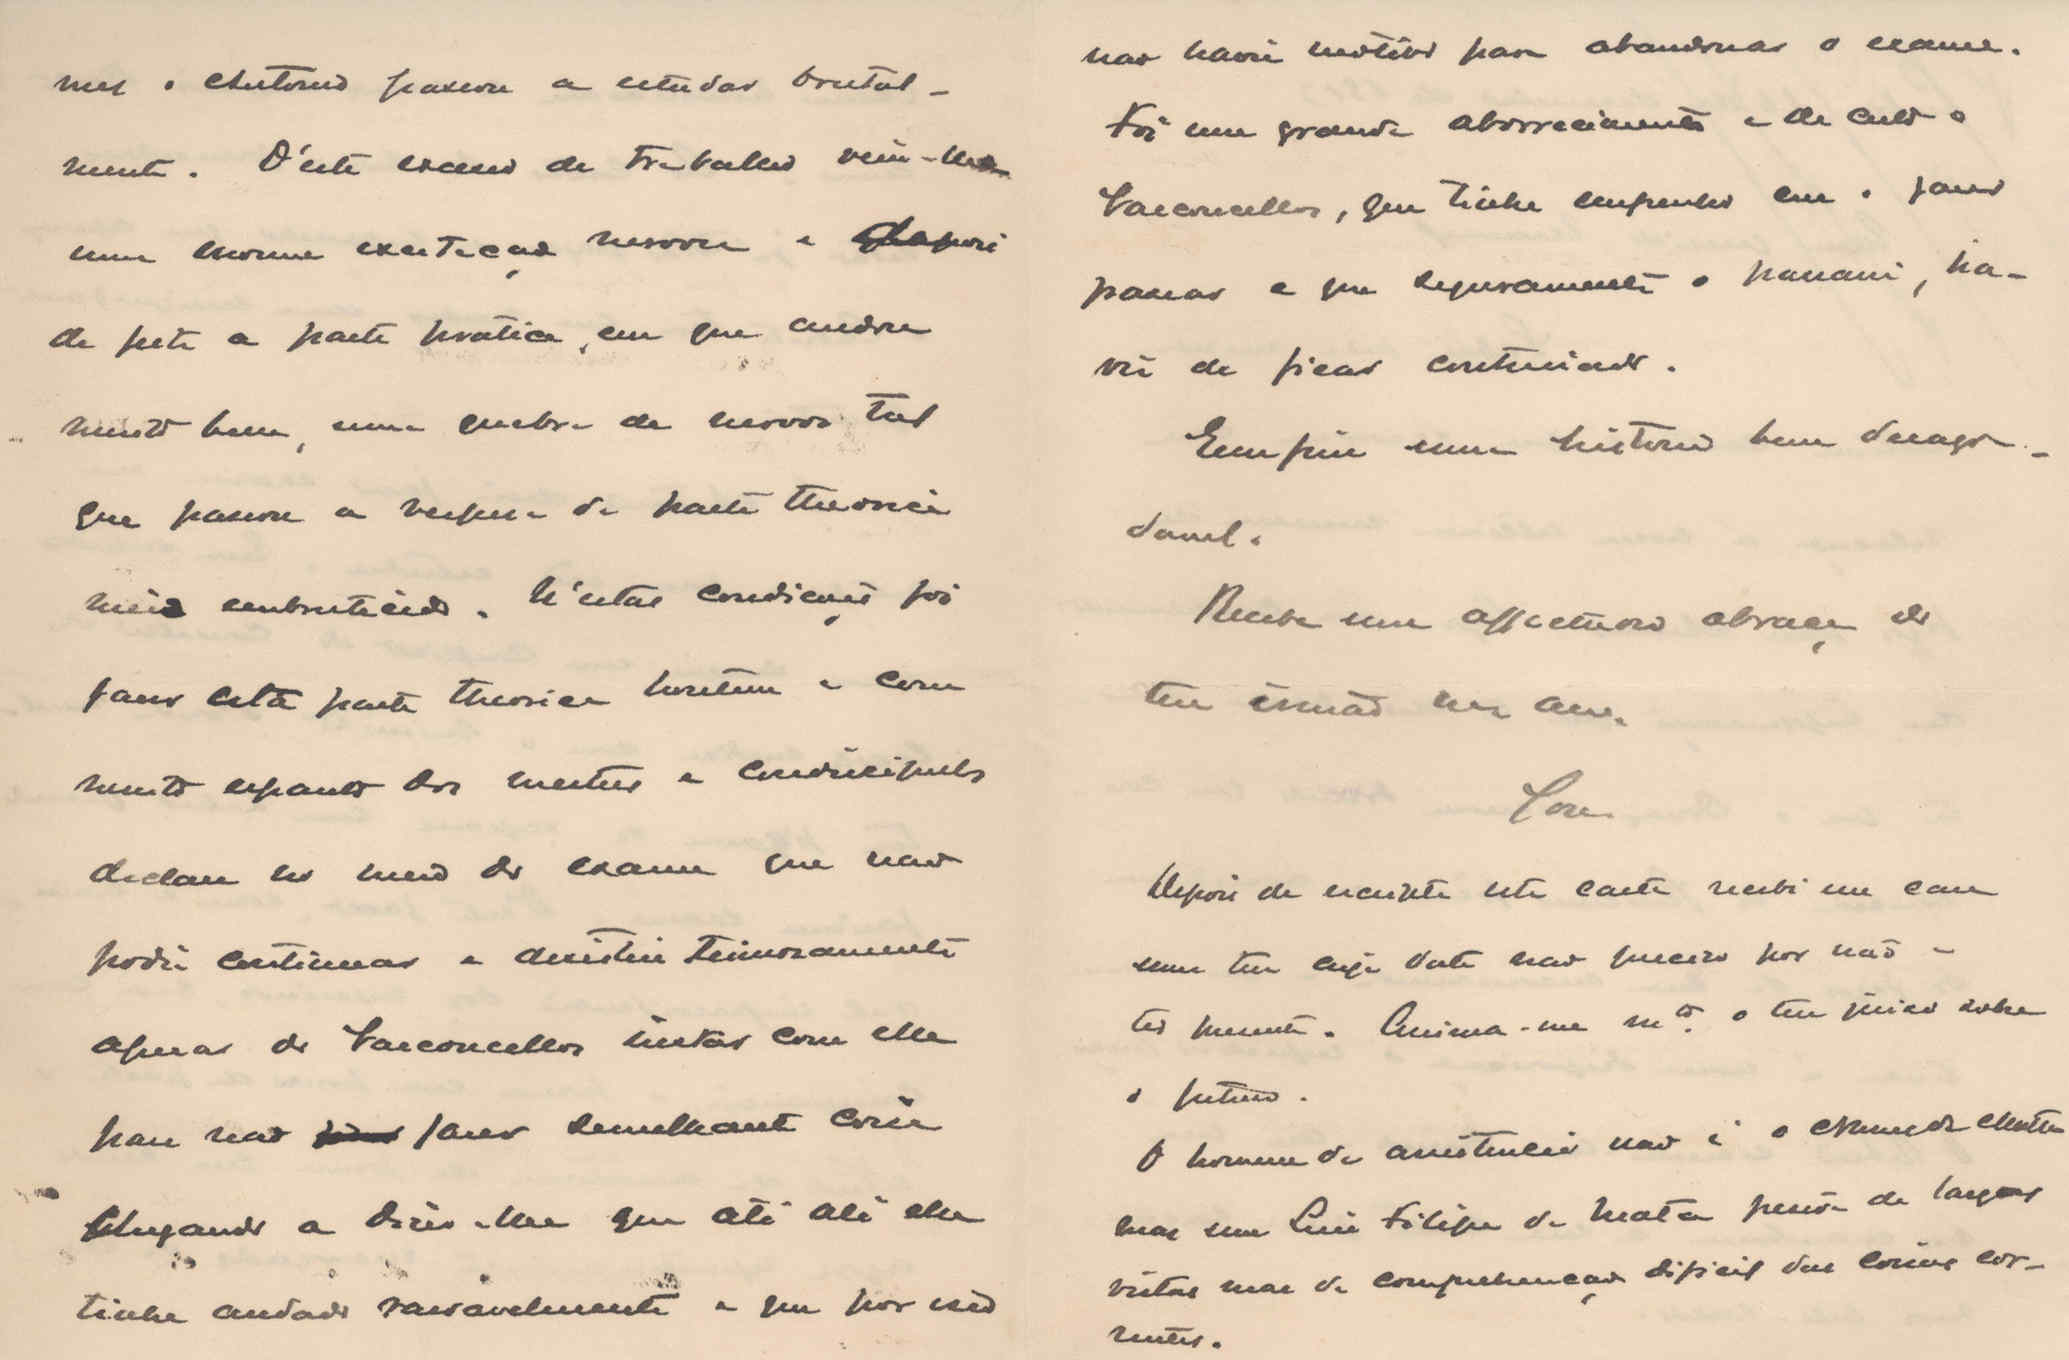 mez o Antonio passou a estudar brutal-
mente. D'este excesso de trabalho veiu-lhe
uma enorme exitação nervosa e depois
de feita a parte pratica, em que andou
muito bem, uma quebra de nervos tal
que passou a vespera da parte theorica
meio embrutecido. N'estas condições foi
fazer esta parte theorica hontem e com
muito espanto dos mestres e condiscipulos
declara no meio do exame que não
podia continuar e desistiu teimosamente
apesar do Vasconcellos instar com elle
para não fazer semelhante coisa
chegando a dizer-lhe que até alí elle
tinha andado rasoavelmente e que por isso
não havia motivo para abandonar o exame.
Foi um grande aborrecimento e de certo o
Vasconcellos, que tinha empenho em o fazer
passar e que seguramente o passaria, ha-
via de ficar contrariado.
Emfim uma historia bem desagra-
davel.
Recebe um affectuoso abraço do
teu irmão
José
Depois de escripta esta carta recebi uma carta
tua cuja data não preciso por não a
ter presente. Anima-me mto. o teu juizo sobre
o futuro.
O homem da assistencia não é o
mas um Luiz Filipe da Matta pessoa de largas
vistas mas de comprehenção dificil das coisas cor-
rentes.